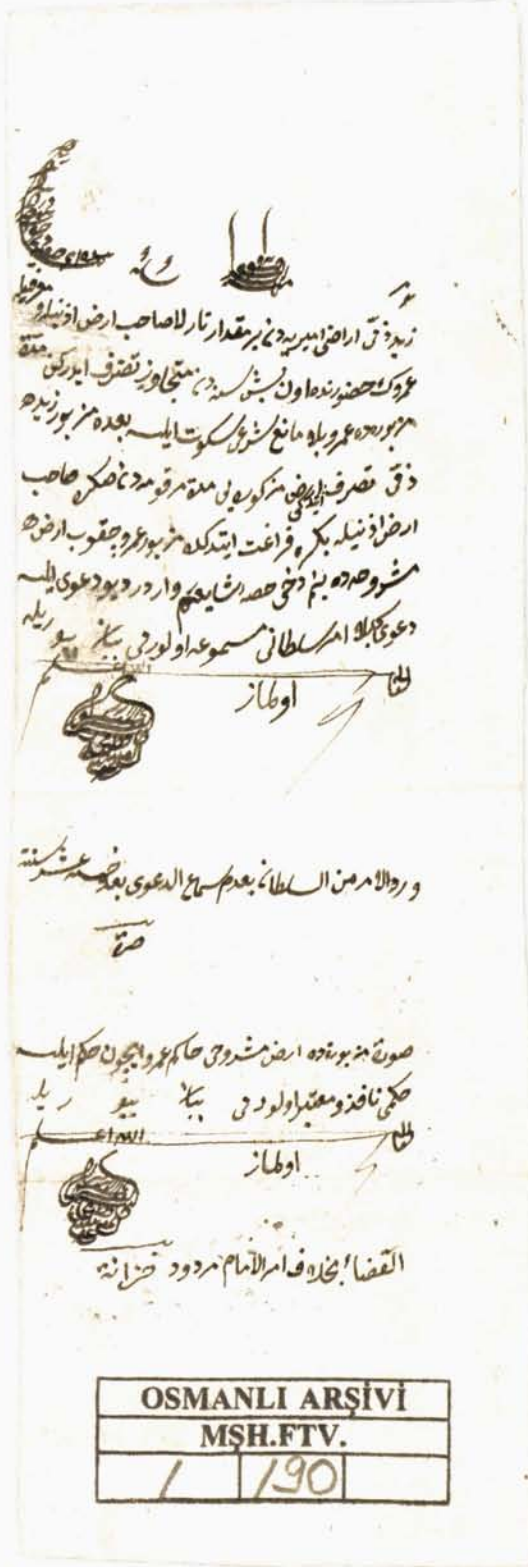 زید ذمی اراضی امیریه دن بر مقدار تارلا صاحب ارض اذنیله
عمروك حضورنده اون بش سنه دن متجاوز تصرف ایدركن مدة
مزبوره ده عمرو بلا مانع شرعی سكوت ایلسه بعده مزبور زید
ذمی تصرف ایتدیكی ارض مذكوره یی مدة مرقومه دن صكره صاحب
ارض اذنیله بكره فراغت ایتدكده مزبور عمرو چقوب ارض
مشروحه ده بنم دخی حصه شایعه م وار در دیو دعوی ایلسه
دعوی بلا امر سلطانی مسموعه اولورمی بیان بیوریله
الله اعلم
اولماز
ورد الامر من السلطان بعدم سماع الدعوی بعد خمسة عشر سنة
صورة مزبوره ده ارض مشروحی حاكم عمرو ایچون حكم ایلسه
حكمی نافذ و معتبر اولورمی بیان بیوریله
الله اعلم
اولماز
القضاء بخلاف امر الامام مردود خزانة
OSMANLI ARŞİVİ
MŞH.FTV.
1 190